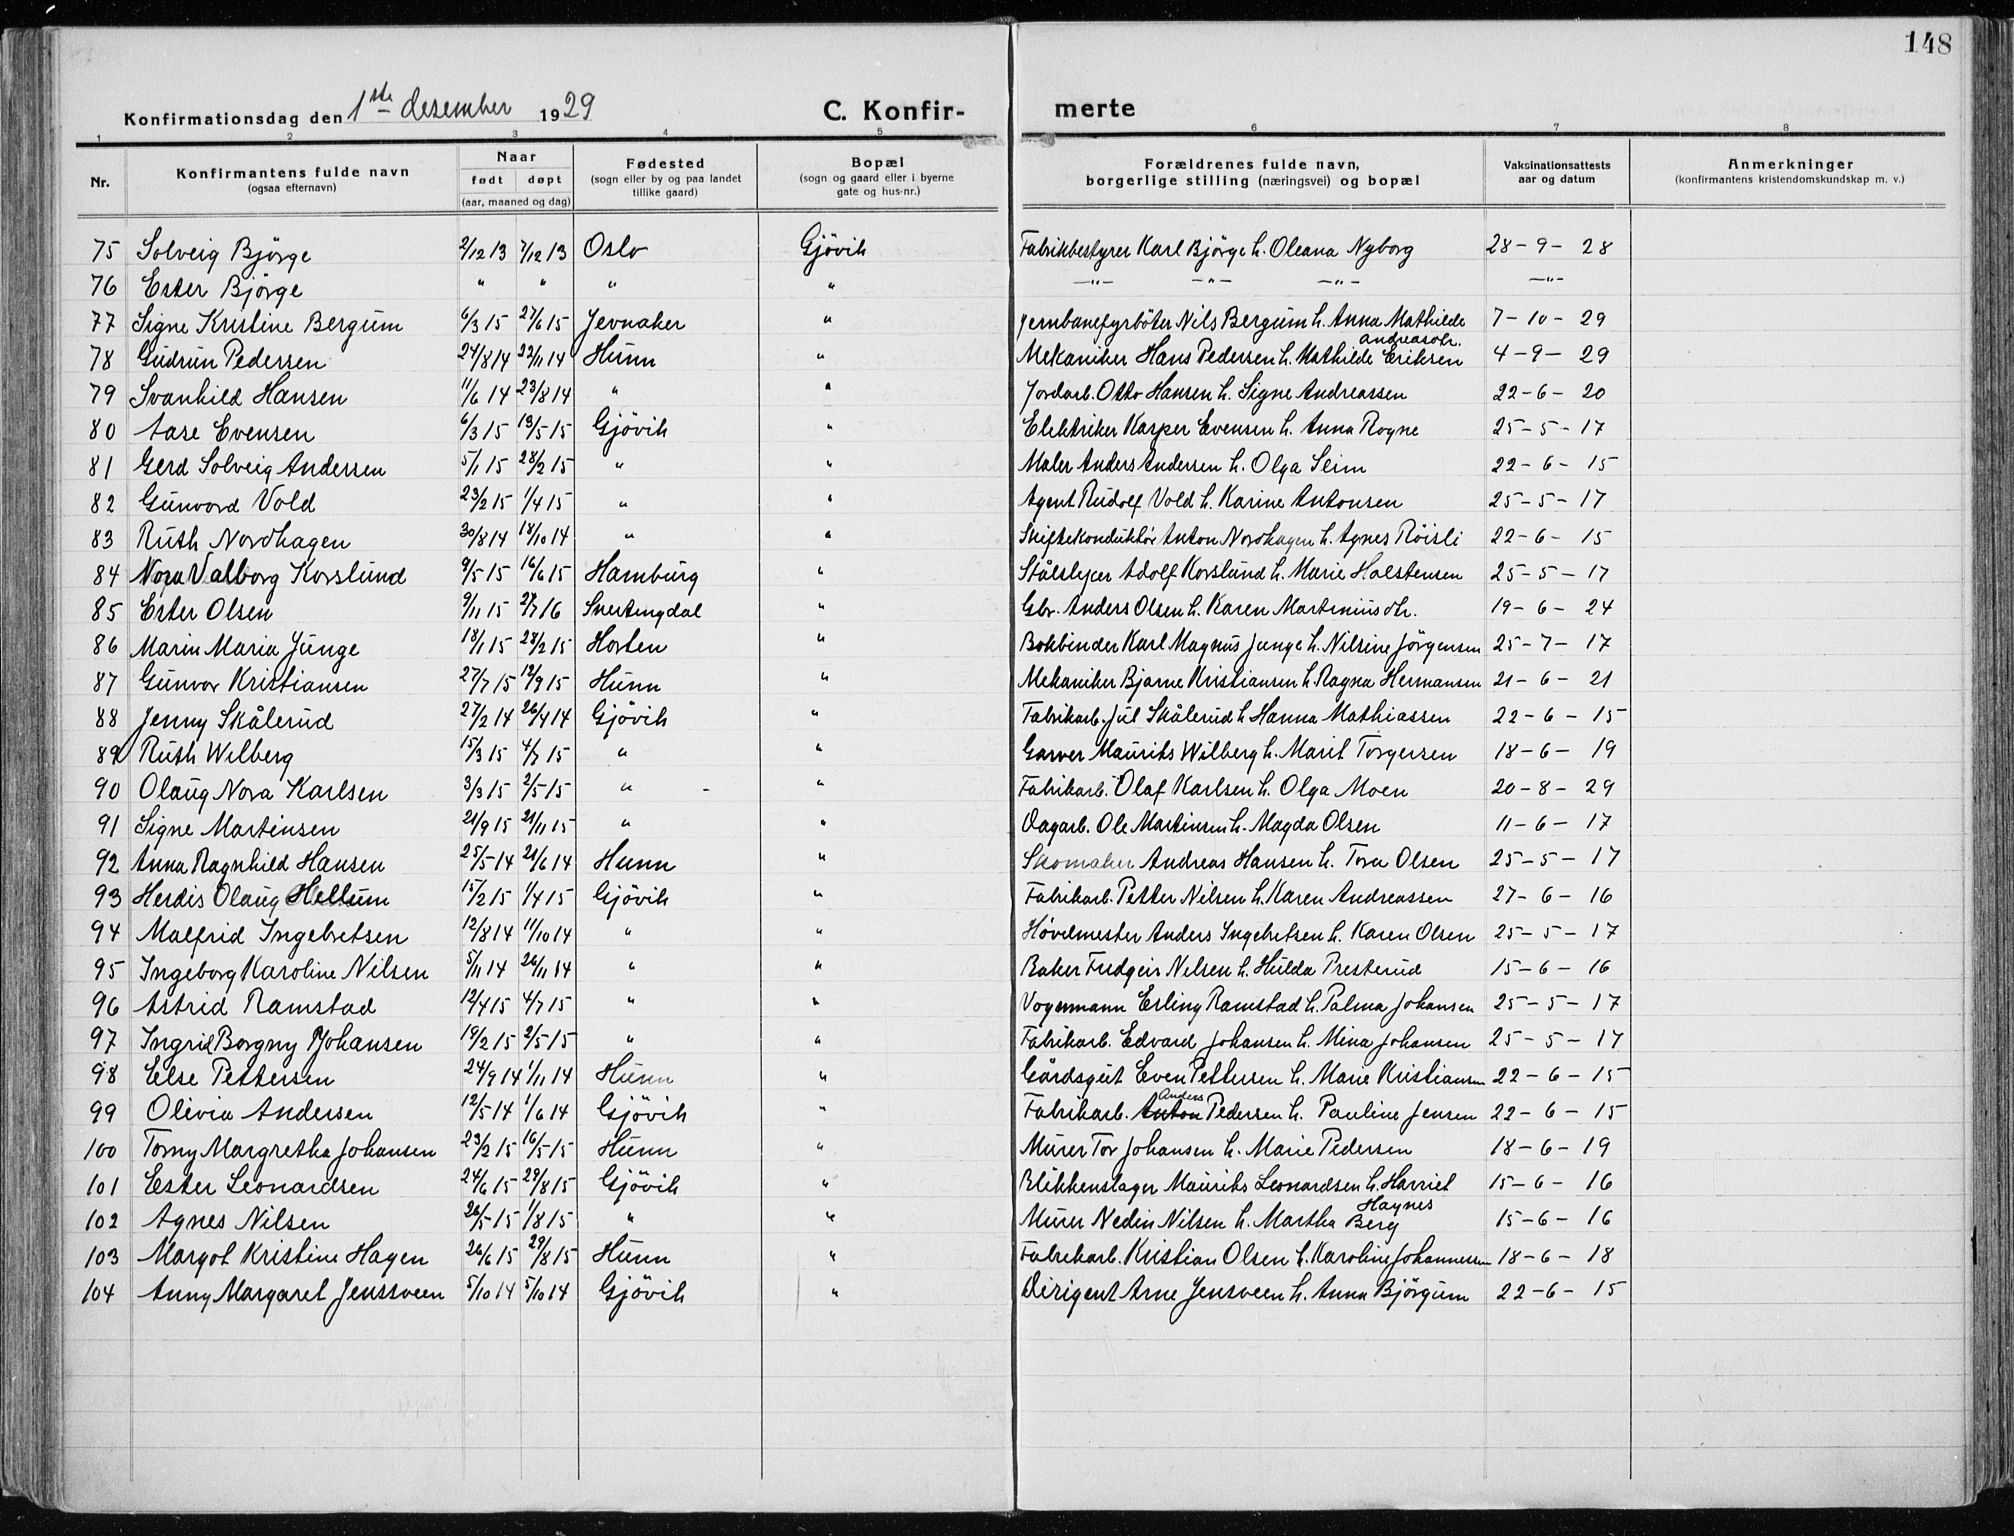 148
Konfirmationsdag den 1ste desember 1929 C. Konfir- merte
1 2 3 4 5 6 7 8
Nr. Konfirmantens fulde navn (ogsaa efternavn) Naar født døpt (aar, maaned og dag) Fødested (sogn eller by og paa landet tillike gaard) Bopæl (sogn og gaard eller i byerne gate og hus-nr.) Forældrenes fulde navn, borgerlige stilling (næringsvei) og bopæl Vaksinationsattests aar og datum Anmerkninger (konfirmantens kristendomskundskap m. v.)
75 Solveig Bjørge 2/12 13 7/12 13 Oslo Gjövik Fabrikbestyrer Karl Bjørge h. Oleana Nyborg 28-9-28
76 Ester Bjørge " " " " -"- -"- -"- -"-
77 Signe Kristine Bergum 6/3 15 27/6 15 Jevnaker " Jernbanefyrböter Nils Bergum h. Anna Mathilde Andreasdr. 7-10-29
78 Gudrun Pedersen 24/8 14 22/11 14 Hunn " Mekaniker Hans Pedersen h. Mathilde Eriksen 4-9-29
79 Svanhild Hansen 11/6 14 23/8 14 " " Jordarb. Otto Hansen h. Signe Andreassen 22-6-20
80 Aase Evensen 6/3 15 13/5-15 Gjövik " Elektriker Kasper Evensen h. Anna Rogne 25-5-17
81 Gerd Solveig Andersen 5/1 15 28/2 15 " " Maler Anders Andersen h. Olga Seim 22-6-15
82 Gunvord Vold 23/2 15 1/4 15 " " Agent Rudolf Vold h. Karine Antonsen 25-5-17
83 Ruth Nordhagen 30/8 14 18/10 14 " " Skiftekonduktör Anton Nordhagen h. Agnes Röisli 22-6-15
84 Nora Valborg Korslund 9/5 15 16/6 15 Hamburg " Stålsleper Adolf Korslund h. Marie Holstensen 25-5-17
85 Ester Olsen 9/11 15 2/7 16 Snertingdal " Gbr. Anders Olsen h. Karen Martiniusdtr. 19-6-24
86 Marin Maria Junge 18/1 15 28/2 15 Horten " Bokbinder Karl Magnus Junge h. Nilsine Jörgensen 25-7-17
87 Gunvor Kristiansen 27/7 15 12/9 15 Hunn " Mekaniker Bjarne Kristiansen h. Ragna Hermansen 21-6-21
88 Jenny Skålerud 27/2 14 26/4 14 Gjövik " Fabrikarb. Jul Skålerud h. Hanna Mathiassen 22-6-15
89 Ruth Wilberg 15/3 15 4/7 15 " " Garver Maurits Wilberg h. Marit Torgersen 18-6-19
90 Olaug Nora Karlsen 3/3 15 2/5-15 " - " Fabrikarb. Olaf Karlsen h. Olga Moen 20-8-29
91 Signe Martinsen 21/9 15 21/11 15 " " Dagarb. Ole Martinsen h. Magda Olsen 11-6-17
92 Anna Ragnhild Hansen 25/5-14 21/6 14 Hunn " Skomaker Andreas Hansen h. Tora Olsen 25-5-17
93 Herdis Olaug Hellum 15/2 15 1/4 15 Gjövik " Fabrikarb. Petter Nilsen h. Karen Andreassen 27-6-16
94 Malfrid Ingebretsen 12/8 14 11/10 14 " " Hövelmester Anders Ingebretsen h. Karen Olsen 25-5-17
95 Ingeborg Karoline Nilsen 5/11 14 26/11 14 " " Baker Fredgeir Nilsen h. Hulda Presterud 15-6-16
96 Astrid Ramstad 12/4 15 4/7 15 " " Vognmann Erling Ramstad h. Palma Johansen 25-5-17
97 Ingrid Borgny Johansen 19/2 15 2/5-15 " " Fabrikarb. Edvard Johansen h. Mina Johansen 25-5-17
98 Else Pettersen 24/9 14 1/11 14 Hunn " Gårdsgut Even Pettersen h. Marie Kristiansen 22-6-15
99 Olivia Andersen 12/5 14 1/6 14 Gjövik " Fabrikarb. Anton Anders Pedersen h. Pauline Jensen 22-6-15
100 Torny Margretha Johansen 23/2 15 16/5-15 Hunn " Murer Tor Johansen h. Marie Pedersen 18-6-19
101 Ester Leonardsen 24/6 15 29/8 15 Gjövik " Blikkenslager Maurits Leonardsen h. Harriet Haynes 15-6-16
102 Agnes Nilsen 26/5-15 1/8 15 " " Murer Nedin Nilsen h. Martha Berg 15-6-16
103 Margot Kristine Hagen 26/6 15 29/8 15 Hunn " Fabrikarb. Kristian Olsen h. Karoline Johannessen 18-6-18
104 Anny Margaret Jenssveen 5/10 14 5/10 14 Gjövik " Dirigent Arne Jensveen h. Anna Björgum 22-6-15